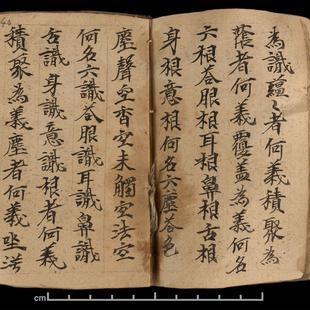 為識蘊〻者何義積聚為
蔭者何義覆蓋為義何名
六根荅眼根耳根鼻根舌根
身根意根何名六塵荅色
塵聲空香空未觸空法空
何名六識荅眼識耳識鼻識
舌識身識意識根者何義
積聚為義塵者何義坌
cm